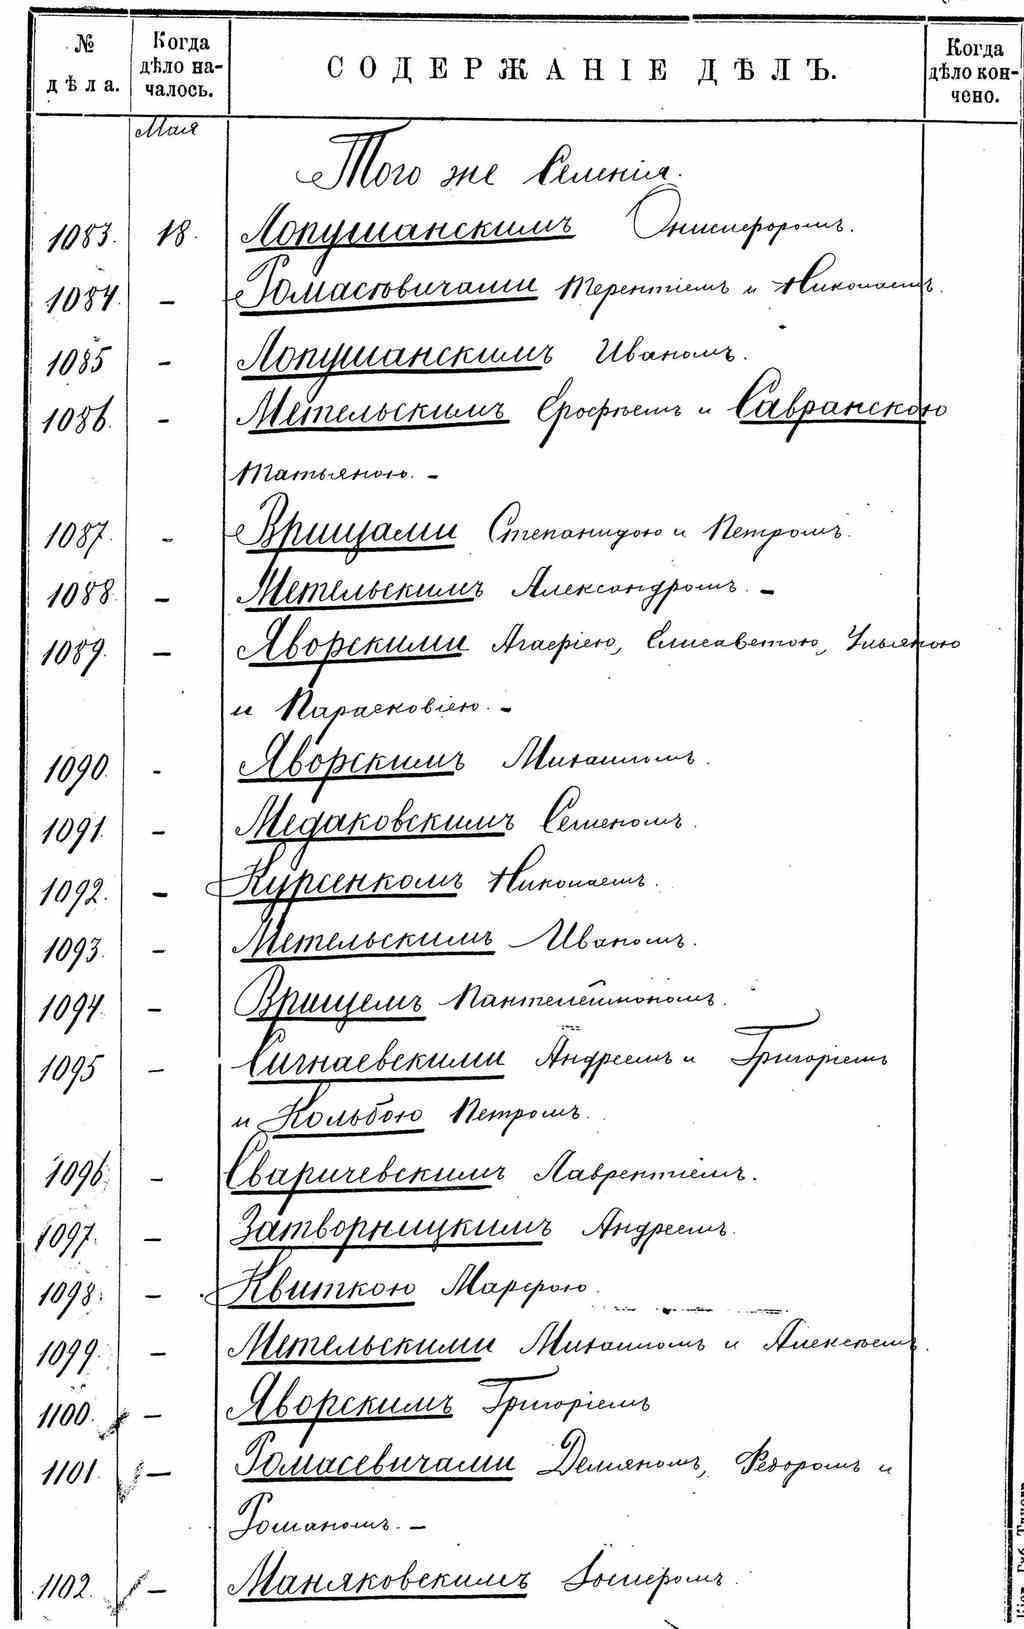 № дѣла. Когда дѣло началось. СОДЕРЖАНІЕ ДѢЛЪ. Когда дѣло кончено.
Мая
Того же Селенія.
1083. 18. Лопушанскимъ Онисифоромъ.
1084. – Ромасювичами Терентіемъ и Николаемъ.
1085 – Лопушанскимъ Иваномъ.
1086. – Метельскимъ Ерофѣемъ и Савранскою
Татьяною. –
1087. – Врищами Степанидою и Петромъ.
1088. – Метельскимъ Александромъ. –
1089. – Яворскими Агафіею, Елисаветою, Ульяною
и Парасковіею. –
1090. – Яворскимъ Михаиломъ.
1091. – Медаковскимъ Семеномъ.
1092. – Курсенкомъ Николаемъ.
1093. – Метельскимъ Иваномъ.
1094. – Врищемъ Пантелеймономъ.
1095 – Сигнаевскими Андреемъ и Григоріемъ
и Кольбою Петромъ.
1096. – Сваричевскимъ Лаврентіемъ.
1097. – Затворницкимъ Андреемъ.
1098. – Квиткою Марфою.
1099. – Метельскими Михаиломъ и Алексѣемъ.
1100. – Яворскимъ Григоріемъ
1101 – Ромасевичами Демяномъ, Федоромъ и
Романомъ. –
1102. – Маняковскимъ Іосифомъ.